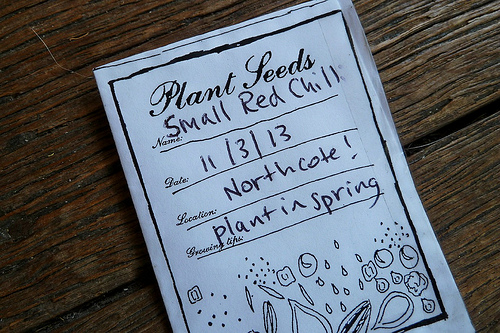 Plant Seeds
Name: Small Red Chilli
Date: 11/3/13
Location: Northcote!
Growing tips: plant in spring